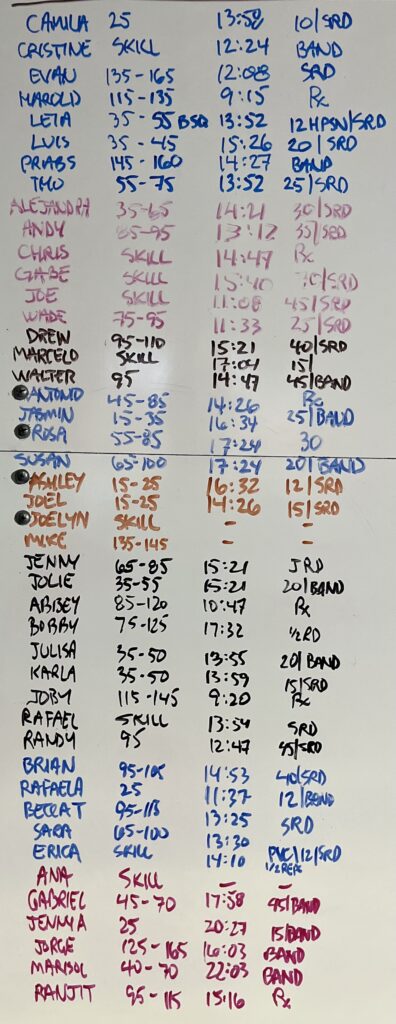 CAMILA 25 13:58 10/SRD
CRISTINE SKILL 12:24 BAND
EVAN 135-165 12:08 SRD
MAROLD 115-135 9:15 Rx
LETA 35-55 BSQ 13:52 12HPSN/SRD
LUIS 35-45 15:26 20/SRD
PRABS 145-160 14:27 BAND
TMO 55-75 13:52 25/SRD
ALEJANDRA 35-65 14:21 30/SRD
ANDY 85-95 13:12 35/SRD
CHRIS SKILL 14:47 Rx
GABE SKILL 15:40 30/SRD
JOE SKILL 11:08 45/SRD
WADE 75-95 11:33 25/SRD
DREW 95-110 15:21 40/SRD
MARCELO SKILL 17:04 15/
WALTER 95 14:47 45/BAND
ANTONIO 45-85 14:26 Rx
JASMIN 15-35 16:34 25/BAND
ROSA 55-85 17:24 30
SUSAN 65-100 17:24 20/BAND
ASHLEY 15-25 16:32 12/SRD
JOEL 15-25 14:26 15/SRD
JOELYN SKILL - -
MIKE 135-145 - -
JENNY 65-85 15:21 JRD
JOLIE 35-55 15:21 20/BAND
ABBEY 85-120 10:47 Rx
BOBBY 75-125 17:32 1/2RD
JULISA 35-50 13:55 20/BAND
KARLA 35-50 13:59 15/SRD
JOBY 115-145 9:20 Rx
RAFAEL SKILL 13:54 SRD
RANDY 95 12:47 /SRD
BRIAN 95-105 14:53 40/SRD
RAFAELA 25 11:37 12/BAND
BECCA T 95-115 13:25 SRD
SARA 65-100 13:30
ERICA SKILL 14:10 PVC/12/SRD
1/2 REPS
ANA SKILL - -
GABRIEL 45-70 17:58 45/BAND
JENNY A 25 20:27 15/BAND
JORGE 125-165 16:03 BAND
MARISOL 40-70 22:03 BAND
RANJIT 95-115 15:16 Rx